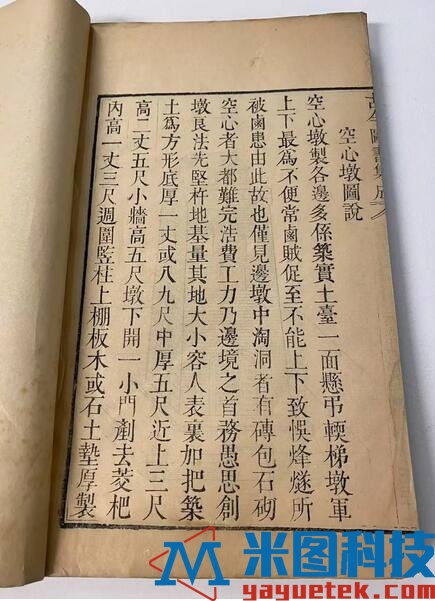 古今圖書集成
空心墩圖說
空心墩製各邊多係築實土臺一面懸弔輭梯墩軍
上下最爲不便常鹵賊促至不能上下致悞烽燧所
被鹵患由此故也僅見邊墩中淘洞者有磚包石砌
空心者大都難完浩費工力乃邊境之首務愚思創
墩良法先堅杵地基量其地大小容人表裏加把築
土爲方形底厚一丈或八九尺中厚五尺近上三尺
高二丈五尺小牆高五尺墩下開一小門剷去菱杷
內高一丈三尺週圍竪柱上棚板木或石土墊厚製
米图科技
yayuetek.com